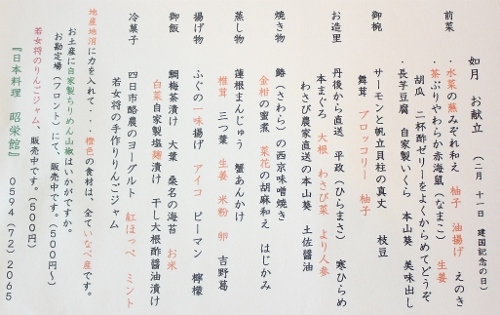 如月　お献立　（二月　十一日　建国記念の日）
前菜　・水菜の蒸みぞれ和え　柚子　油揚げ　えのき
・茶ぶりやわらか赤海鼠（なまこ）　生姜
胡瓜　二杯酢ゼリーをよくからめてどうぞ
・長芋豆腐　自家製いくら　本山葵　美味出し
御椀　サーモンと帆立貝柱の真丈　枝豆
舞茸　ブロッコリー　柚子
お造里　丹後から直送　平政（ひらまさ）　寒ひらめ
本まぐろ　大根　わさび菜　より人参
わさび農家直送の本山葵　土佐醤油
焼き物　鰆（さわら）の西京味噌焼き
金柑の蜜煮　菜花の胡麻和え　はじかみ
蒸し物　蓮根まんじゅう　蟹あんかけ
椎茸　三つ葉　生姜　米粉　卵　吉野葛
揚げ物　ふぐの一味揚げ　アイコ　ピーマン　檸檬
御飯　鯛梅茶漬け　大葉　桑名の海苔　お米
白菜自家製塩麹漬け　干し大根酢醤油漬け
冷菓子　四日市酪農のヨーグルト　紅ほっぺ　ミント
若女将の手作りりんごジャム
地産地消に力を入れて・・橙色の食材は、全ていなべ産です。
お土産に自家製ちりめん山椒はいかがですか。
お勘定場（フロント）にて、販売中です。（５００円〜）
若女将のりんごジャム、販売中です。（６００円）
『日本料理　昭栄館』　０５９４（７２）２０６５